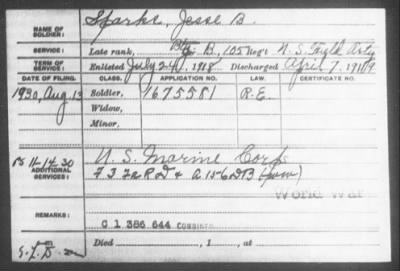 NAME OF SOLDIER: Sparks, Jesse B.
SERVICE: Late rank, Btry B, 105 Reg't U.S. Field Arty
TERM OF SERVICE: Enlisted July 24, 1918 Discharged April 7, 1919
DATE OF FILING. CLASS. APPLICATION NO. LAW. CERTIFICATE NO.
1930, Aug. 13 Soldier, 1675581 R.E.
Widow,
Minor,
11-14-30 U.S. Marine Corps
ADDITIONAL SERVICES:
World War
REMARKS: C 1 386 644 COMBINED
Died , 1 , at